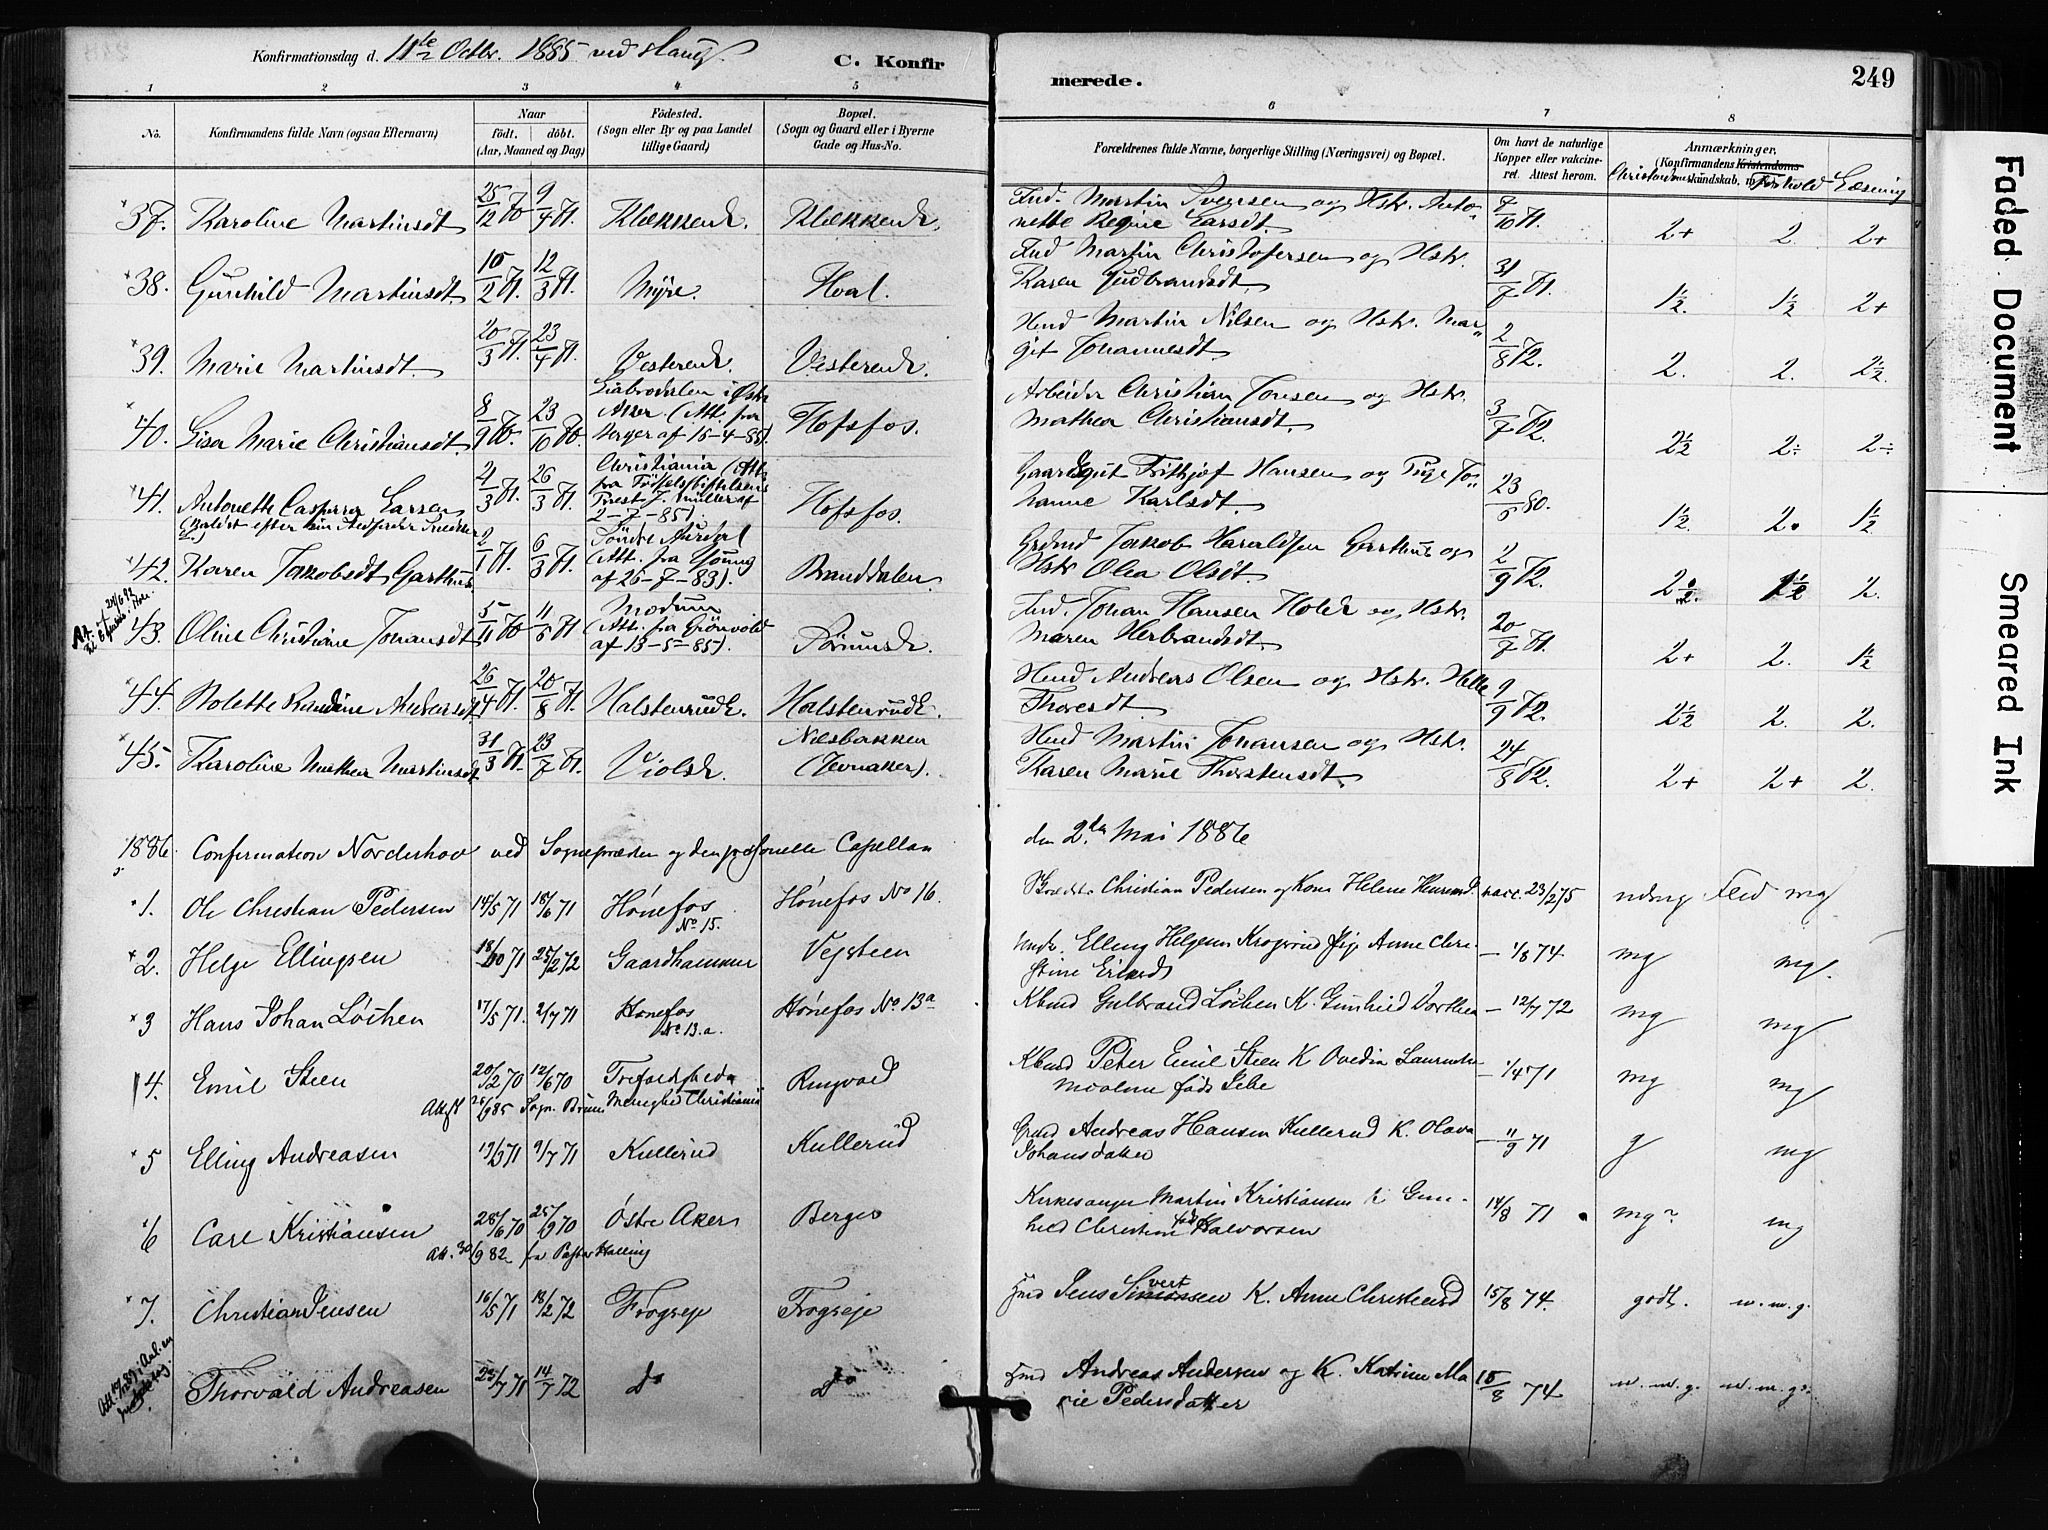 Konfirmationsdag d. 11te Octbr. 1885 ved Haug. C. Konfir
merede. 249
1 2 3 4 5 6 7 8
No. Konfirmandens fulde Navn (ogsaa Efternavn) Naar født. døbt. (Aar, Maaned og Dag) Fødested. (Sogn eller By og paa Landet tillige Gaard) Bopæl. (Sogn og Gaard eller i Byerne Gade og Hus-No.
Forældrenes fulde Navne, borgerlige Stilling (Næringsvei) og Bopæl. Om havt de naturlige Kopper eller vaccineret. Attest herom. Anmærkninger. (Konfirmandens Kristendomskundskab. Forhold Læsning
37. Karoline Martinsdt. 25/12 70 9/4 71. Klækkenr. Klækkenr. Ind. Martin Svensen og Hstr. Anto-
nette Regine Larsdt. 7/10 71. 2+ 2. 2+
38. Gunhild Martinsdt. 10/2 71. 12/3 71. Myre. Hval. Ind Martin Christofersen og Hstr.
Karen Gudbrandsdt. 31/7 71. 1½. 1½ 2+
39. Marie Martinsdt. 20/3 71. 23/4 71. Vesterenr. Vesterenr. Hmd Martin Nilsen og Hstr. Mar-
git Johannesdt. 2/8 72. 2. 2. 2½.
40. Lisa Marie Christiansdt. 8/9 70. 23/10 70. Liabrodalen i Østre
Aker. (Att. fra
Berger af 15-4-85). Hofsfos. Arbeider Christian Jonsen og Hstr.
Mathea Christiansdt. 3/7 72. 2½ 2÷ 2÷
41. Antonette Caspara Larsen 4/3 71. 26/3 71. Christiania (Att.
fra Fødselsstiftelsens
Prest J. Müller af
2-7-85). Hofsfos. Gaardsgut Frithjof Hansen og Pige Jo-
hanne Karlsdt. 23/6 80. 1½. 2. 1½
42. Karen Jakobsdt Garthus 2/1 71. 6/3 71. Søndre Aurdal
(Att. fra Young
af 26-7-83). Branddalen Grdmd Jakob Haraldsen Garthus og
Hstr Olea Olsdt. 2/9 72. 2.
43. Oline Christiane Johansdt 5/11 70 11/6 71 Modum
(Att. fra Grönvold
af 13-5-85). Ind. Johan Hansen Holer og Hstr.
Maren Herbrandsdt. 20/7 71. 2+ 2. 1½
44. Nolette Randine Andersdt 26/4 71. 20/8 71. Halstenrudr. Halstenrudr. Hmd Andreas Olsen og Hstr. Helle
Thoresdt. 9/9 72. 2½ 2. 2.
45. Karoline Mathea Martinsdt. 31/3 71. 23/7 71. Violsr. Næsbakken
(Jevnaker). Hmd Martin Johansen og Hstr.
Karen Marie Thorstensdt. 24/8 72. 2+ 2+ 2.
1886. Confirmation Norderhov ved Sognepræsten og den personelle Capellan den 2den Mai 1886
1. Ole Christian Pedersen 14/5 71 18/6 71 Hønefos
No 15. Hønefos No 16. Christian Pedersen og Kone Helene vacc. 23/2 75 mg
2. Helge Ellingsen 18/10 71 25/2 72 Gaardhammer Vejsteen Elling Helgesen Krogsrud Pige Anne Chri-
stine — 1/8 74 mg mg.
3 Hans Johan Löchen 17/5 71. 2/7 71 Hønefos
No 13.a. Hönefos No 13a Kbmd Gulbrand Löchen K. Gunhild Dorthea — 12/7 72 mg mg
4. Emil Steen 20/2 70 12/6 70 Trefoldigheds
Menighed Christiania Ringvold Kbmd Peter Emil Steen K Ovedia
født — 1/4 71 mg mg
5 Elling Andreasen 2/7 71 Kullerud Kullerud Grmd Andreas Hansen Kullerud K. Olava
Johansdatter — 11/9 71 g mg
6 Carl Kristiansen 28/6 70 25/9 70 Østre Aker Berger Kirkesanger Martin Kristiansen K Gun-
hild Christine født Halvorsen 14/8 71 mg? mg
Att. 30/9 82 fra Pastor Halling
7. Christian Jensen 16/5 71 18/2 72 Frogseje Frogseje Jens Sivertsen K. Anne 15/8 74. godt. m. m. g.
Thorvald Andreasen 22/7 71 14/7 72 Do Do Andreas Andersen og K. Katrine Ma
rie Pedersdatter 15/8 74 m. m. g. m. m. g.
Faded Document Smeared Ink